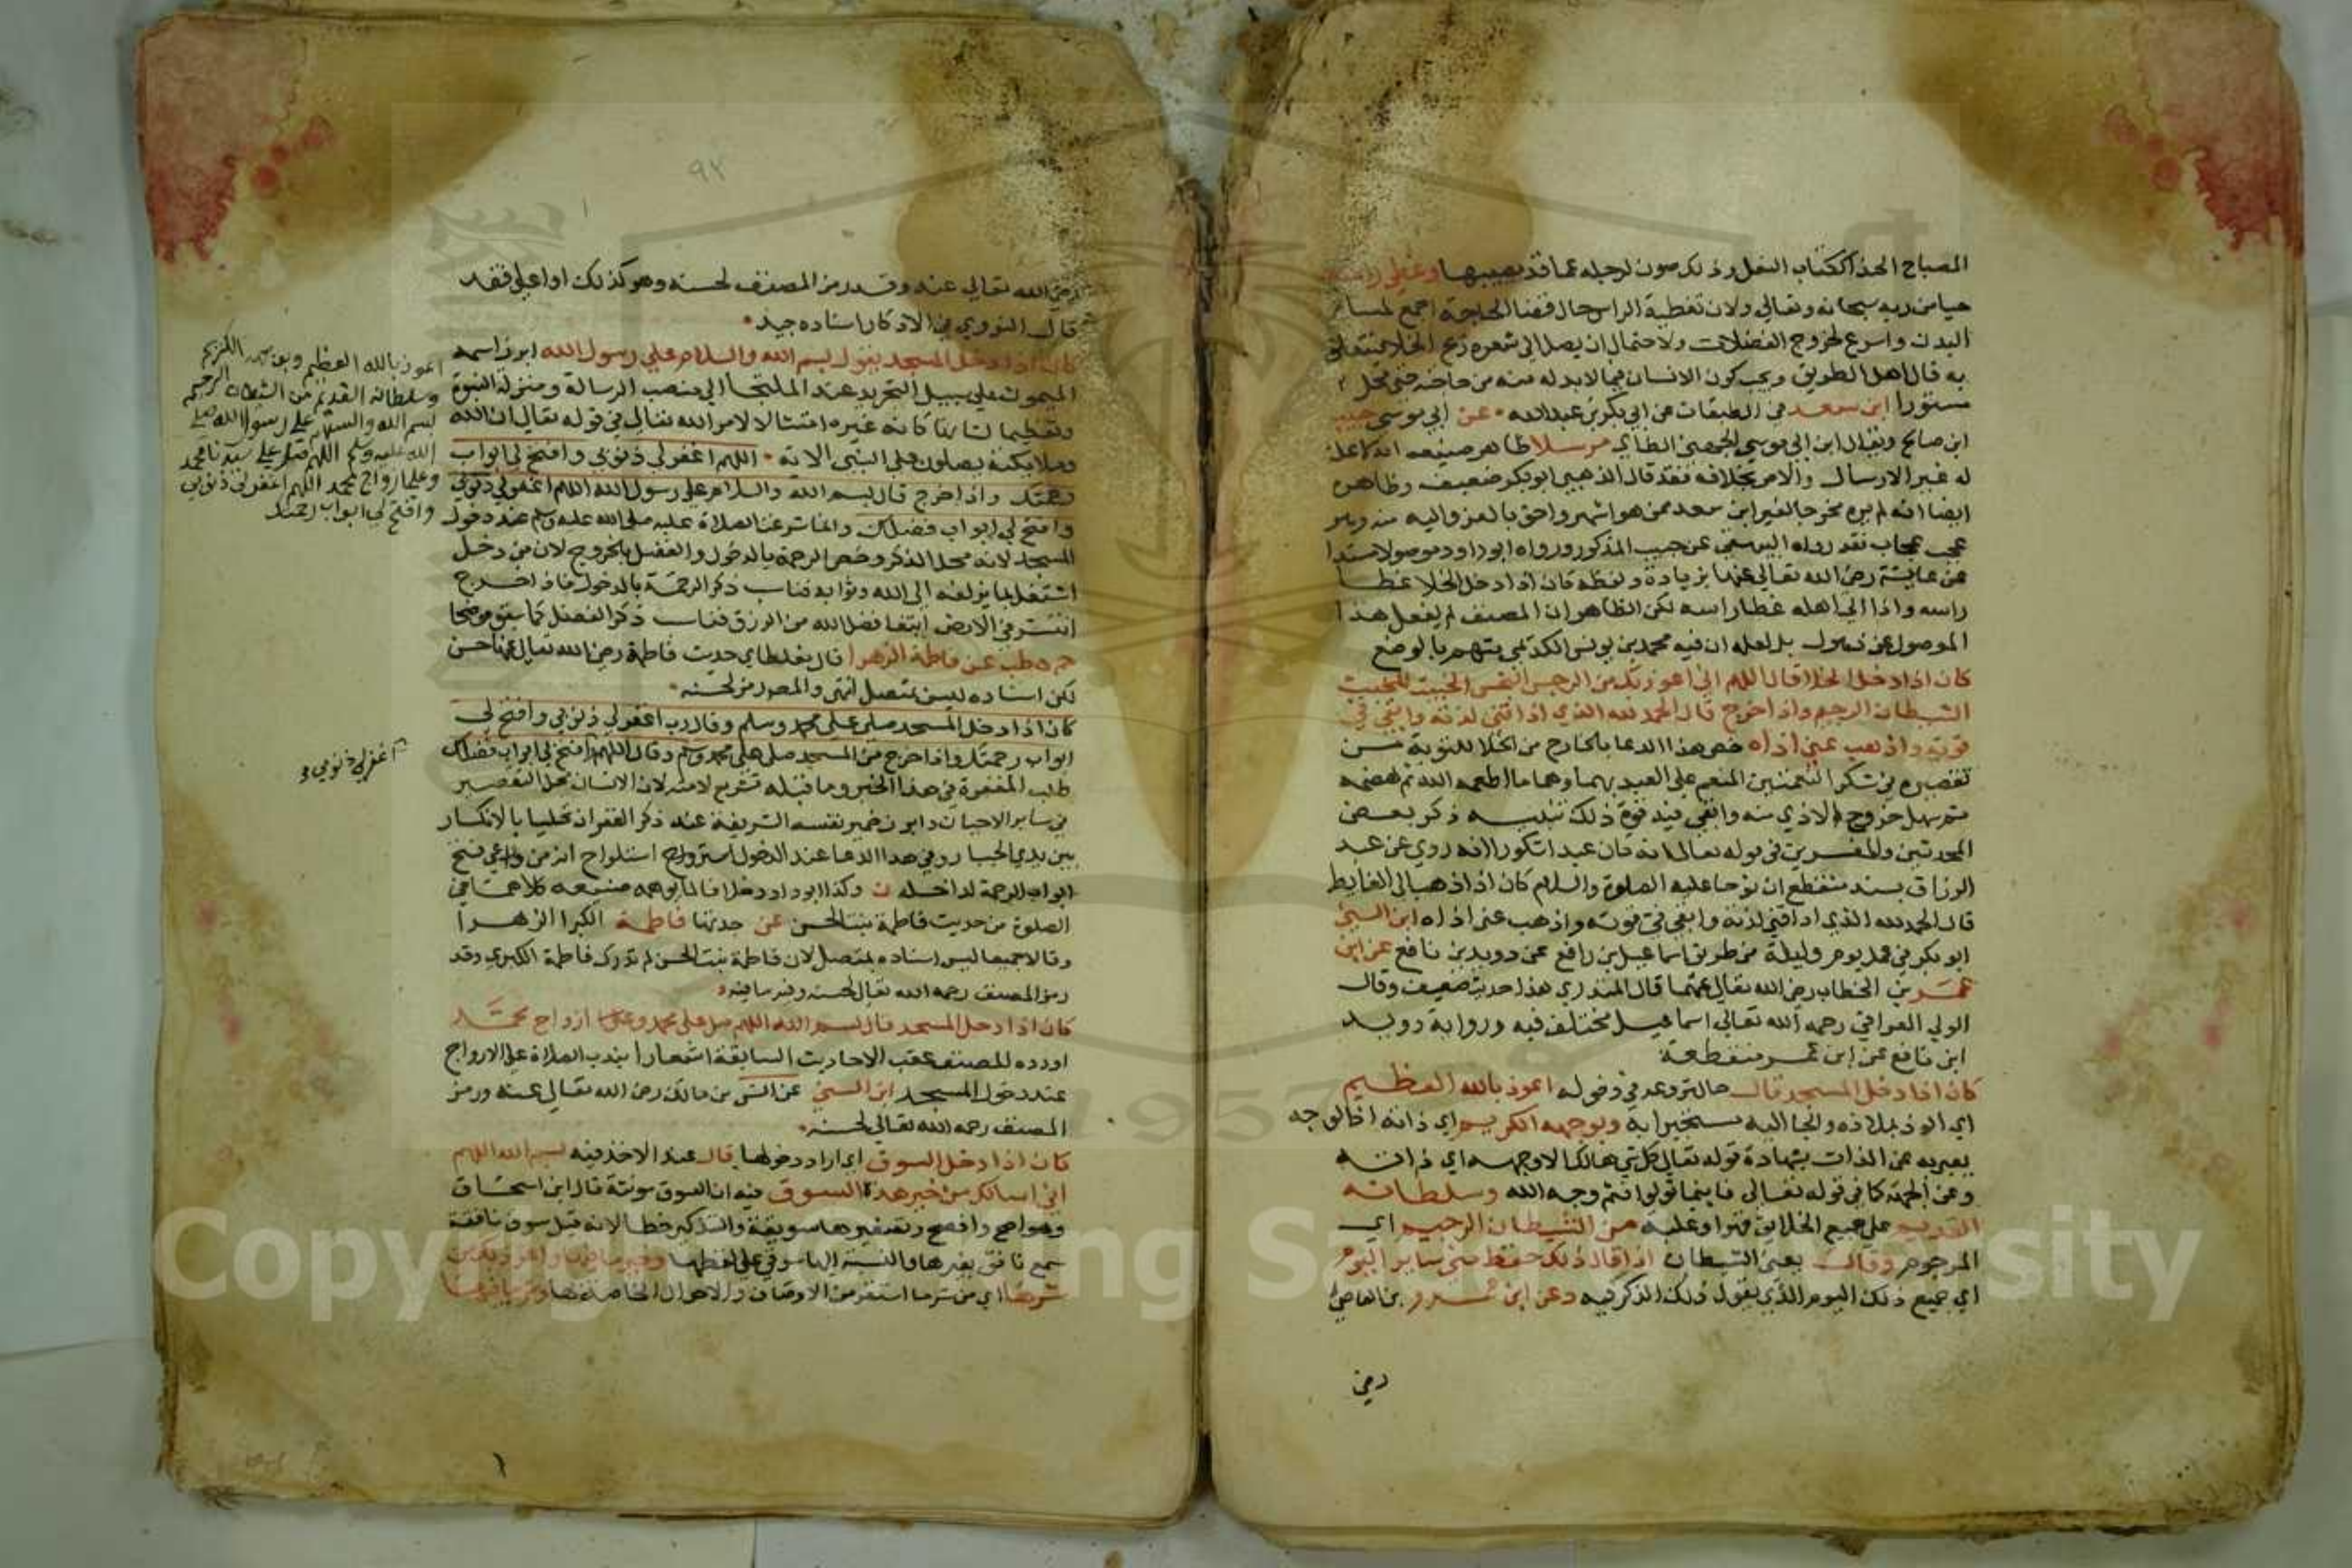 المصباح الحذا ككتاب النعل وذلك صون لرجله عما قد يصيبها وغطى راسه
حيا من ربه سبحانه وتعالى ولان تغطية الراس حال قضا الحاجة اجمع لمسام
البدن واسرع لخروج الفضلات ولاحتمال ان يصل الى شعره ريح الخلا فتعلق
به قال اهل الطريق ويجب كون الانسان فيما لابد له منه من حاجته
مستورا ابن سعد في الطبقات عن ابي بكر بن عبدالله عن ابي موسى حبيب
ابن صالح ويقال ابن ابي موسى الحمصي الطاي مرسلا ظاهر صنيعه انه لاعلة
له غير الارسال والامر بخلافه فقد قال الذهبي ابو بكر ضعيف وظاهره
ايضا انه لم يره مخرجا لغير ابن سعد ممن هو اشهر واحق بالعزو اليه منه وهو
عجب عجاب فقد رواه البيهقي عن حبيب المذكور ورواه ابو داود موصولا مسندا
عن عايشة رضي الله تعالى عنها بزيادة ولفظه كان اذا دخل الخلا غطا
راسه واذا اتى اهله غطا راسه لكن الظاهر ان المصنف لم يغفل هذا
الموصول عن ذهول بل لعله ان فيه محمد بن يونس الكديمي متهم بالوضع
كان اذا دخل الخلا قال اللهم اني اعوذ بك من الرجس النجس الخبيث المخبث
الشيطان الرجيم واذا خرج قال الحمد لله الذي اذاقني لذته وابقى في
قوته واذهب عني اذاه خص هذا الدعا بالخارج من الخلا للتوبة من
تقصيره في شكر النعمتين المنعم على العبد بهما وهما ما اطعمه الله ثم هضمه
ثم سهل خروج الاذي منه وابقى فيه قوة ذلك تنبيه ذكر بعض
المحدثين والمفسرين في قوله تعالى انه كان عبدا شكورا انه روي عن عبد
الرزاق بسند منقطع ان نوحا عليه الصلوة والسلام كان اذا ذهب الى الغايط
قال الحمد لله الذي اذاقني لذته وابقى في قوته واذهب عني اذاه ابن السني
ابو بكر في عمل يوم وليلة من طريق اسماعيل بن رافع عن دويد بن نافع عن ابن
عمر بن الخطاب رضي الله تعالى عنهما قال المنذري هذا حديث ضعيف وقال
الولي العراقي رحمه الله تعالى اسماعيل مختلف فيه ورواية دويد
ابن نافع عن ابن عمر منقطعة
كان اذا دخل المسجد قال حال شروعه في دخوله اعوذ بالله العظيم
اي الوذ بملاذه والجا اليه مستجيرا به وبوجهه الكريم اي ذاته اذ الوجه
يعبر به عن الذات بشهادة قوله تعالى كل شي هالك الا وجهه اي ذاته
وعن الجهة كما في قوله تعالى فاينما تولوا فثم وجه الله وسلطانه
القديم على جميع الخلايق قهرا وغلبة من الشيطان الرجيم اي
المرجوم وقال يعني الشيطان اذا قال ذلك حفظ مني ساير اليوم
اي جميع ذلك اليوم الذي يقول ذلك الذكر فيه د عن ابن عمرو بن العاص
رضي
٩٢
رضي الله تعالى عنه وقد رمز المصنف لحسنه وهو كذلك او اعلى فقد
قال النووي في الاذكار اسناده جيد
كان اذا دخل المسجد يقول بسم الله والسلام على رسول الله ابرز اسمه
الميمون على سبيل التجريد عند الملتجا الى منصب الرسالة ومنزلة النبوة
وتعظيما لشانها كانه غيره امتثالا لامر الله تعالى في قوله تعالى ان الله
وملايكته يصلون على النبي الاية اللهم اغفر لي ذنوبي وافتح لي ابواب
رحمتك واذا خرج قال بسم الله والسلام على رسول الله اللهم اغفر لي ذنوبي
وافتح لي ابواب فضلك وانما شرعت الصلاة عليه صلى الله عليه وسلم عند دخول
المسجد لانه محل الذكر وخص الرحمة بالدخول والفضل بالخروج لان من دخل
اشتغل بما يزلفه الى الله وثوابه فناسب ذكر الرحمة بالدخول فاذا خرج
انتشر في الارض ابتغا فضل الله من الرزق فناسب ذكر الفضل كما سبق موضحا
حم ه طب عن فاطمة الزهرا قال مغلطاي حديث فاطمة رضي الله تعالى عنها حسن
لكن اسناده ليس بمتصل انتهى والمص رمز لحسنه
كان اذا دخل المسجد صلى على محمد وسلم وقال رب اغفر لي ذنوبي وافتح لي
ابواب رحمتك واذا خرج من المسجد صلى على محمد وسلم وقال اللهم افتح لي ابواب فضلك
طلب المغفرة في هذا الخبر وما قبله تشريع لامته لان الانسان محل التقصير
في ساير الاحيان وابرز ضمير نفسه الشريفة عند ذكر الغفران تحليا بالانكسار
بين يدي الجبار وفي هذا الدعا عند الدخول استرواح انه من دواعي فتح
ابواب الرحمة لداخله ت وكذا ابو داود خلافا لما يوهمه صنيعه كلاهما في
الصلوة من حديث فاطمة بنت الحسن عن جدتها فاطمة الكبرا الزهرا
وقالا جميعا ليس اسناده بمتصل لان فاطمة بنت الحسن لم تدرك فاطمة الكبري وقد
رمز المصنف رحمه الله تعالى لحسنه وفيه ما فيه
كان اذا دخل المسجد قال بسم الله اللهم صل على محمد وعلى ازواج محمد
اورده المصنف عقب الاحاديث السابقة اشعارا بندب الصلاة على الازواج
عند دخول المسجد ابن السني عن انس بن مالك رضي الله تعالى عنه ورمز
المصنف رحمه الله تعالى لحسنه
كان اذا دخل السوق اي اراد دخولها قال عند الاخذ فيه بسم الله اللهم
اني اسالك من خير هذه السوق فيه ان السوق مونثة قال ابن اسحاق
وهو اصح وافصح وتصغيرها سويقة والتذكير خطا لانه قيل سوق نافقة
ولم يسمع نافق بغيرها والنسبة اليها سوقي على لفظها وخير ما فيها واعوذ بك من
شرها اي من شر ما استقر من الاوصاف والاحوال الخاصة بها وشر ما فيها
اعوذ بالله العظيم وبوجهه الكريم
وسلطانه القديم من الشيطان الرجيم
بسم الله والسلام على رسول الله صلى
الله عليه وسلم اللهم صل على سيدنا محمد
وعلى ازواج محمد اللهم اغفر لي ذنوبي
وافتح لي ابواب رحمتك
اغفر لي ذنوبي و
Copyright © King Saud University
1957